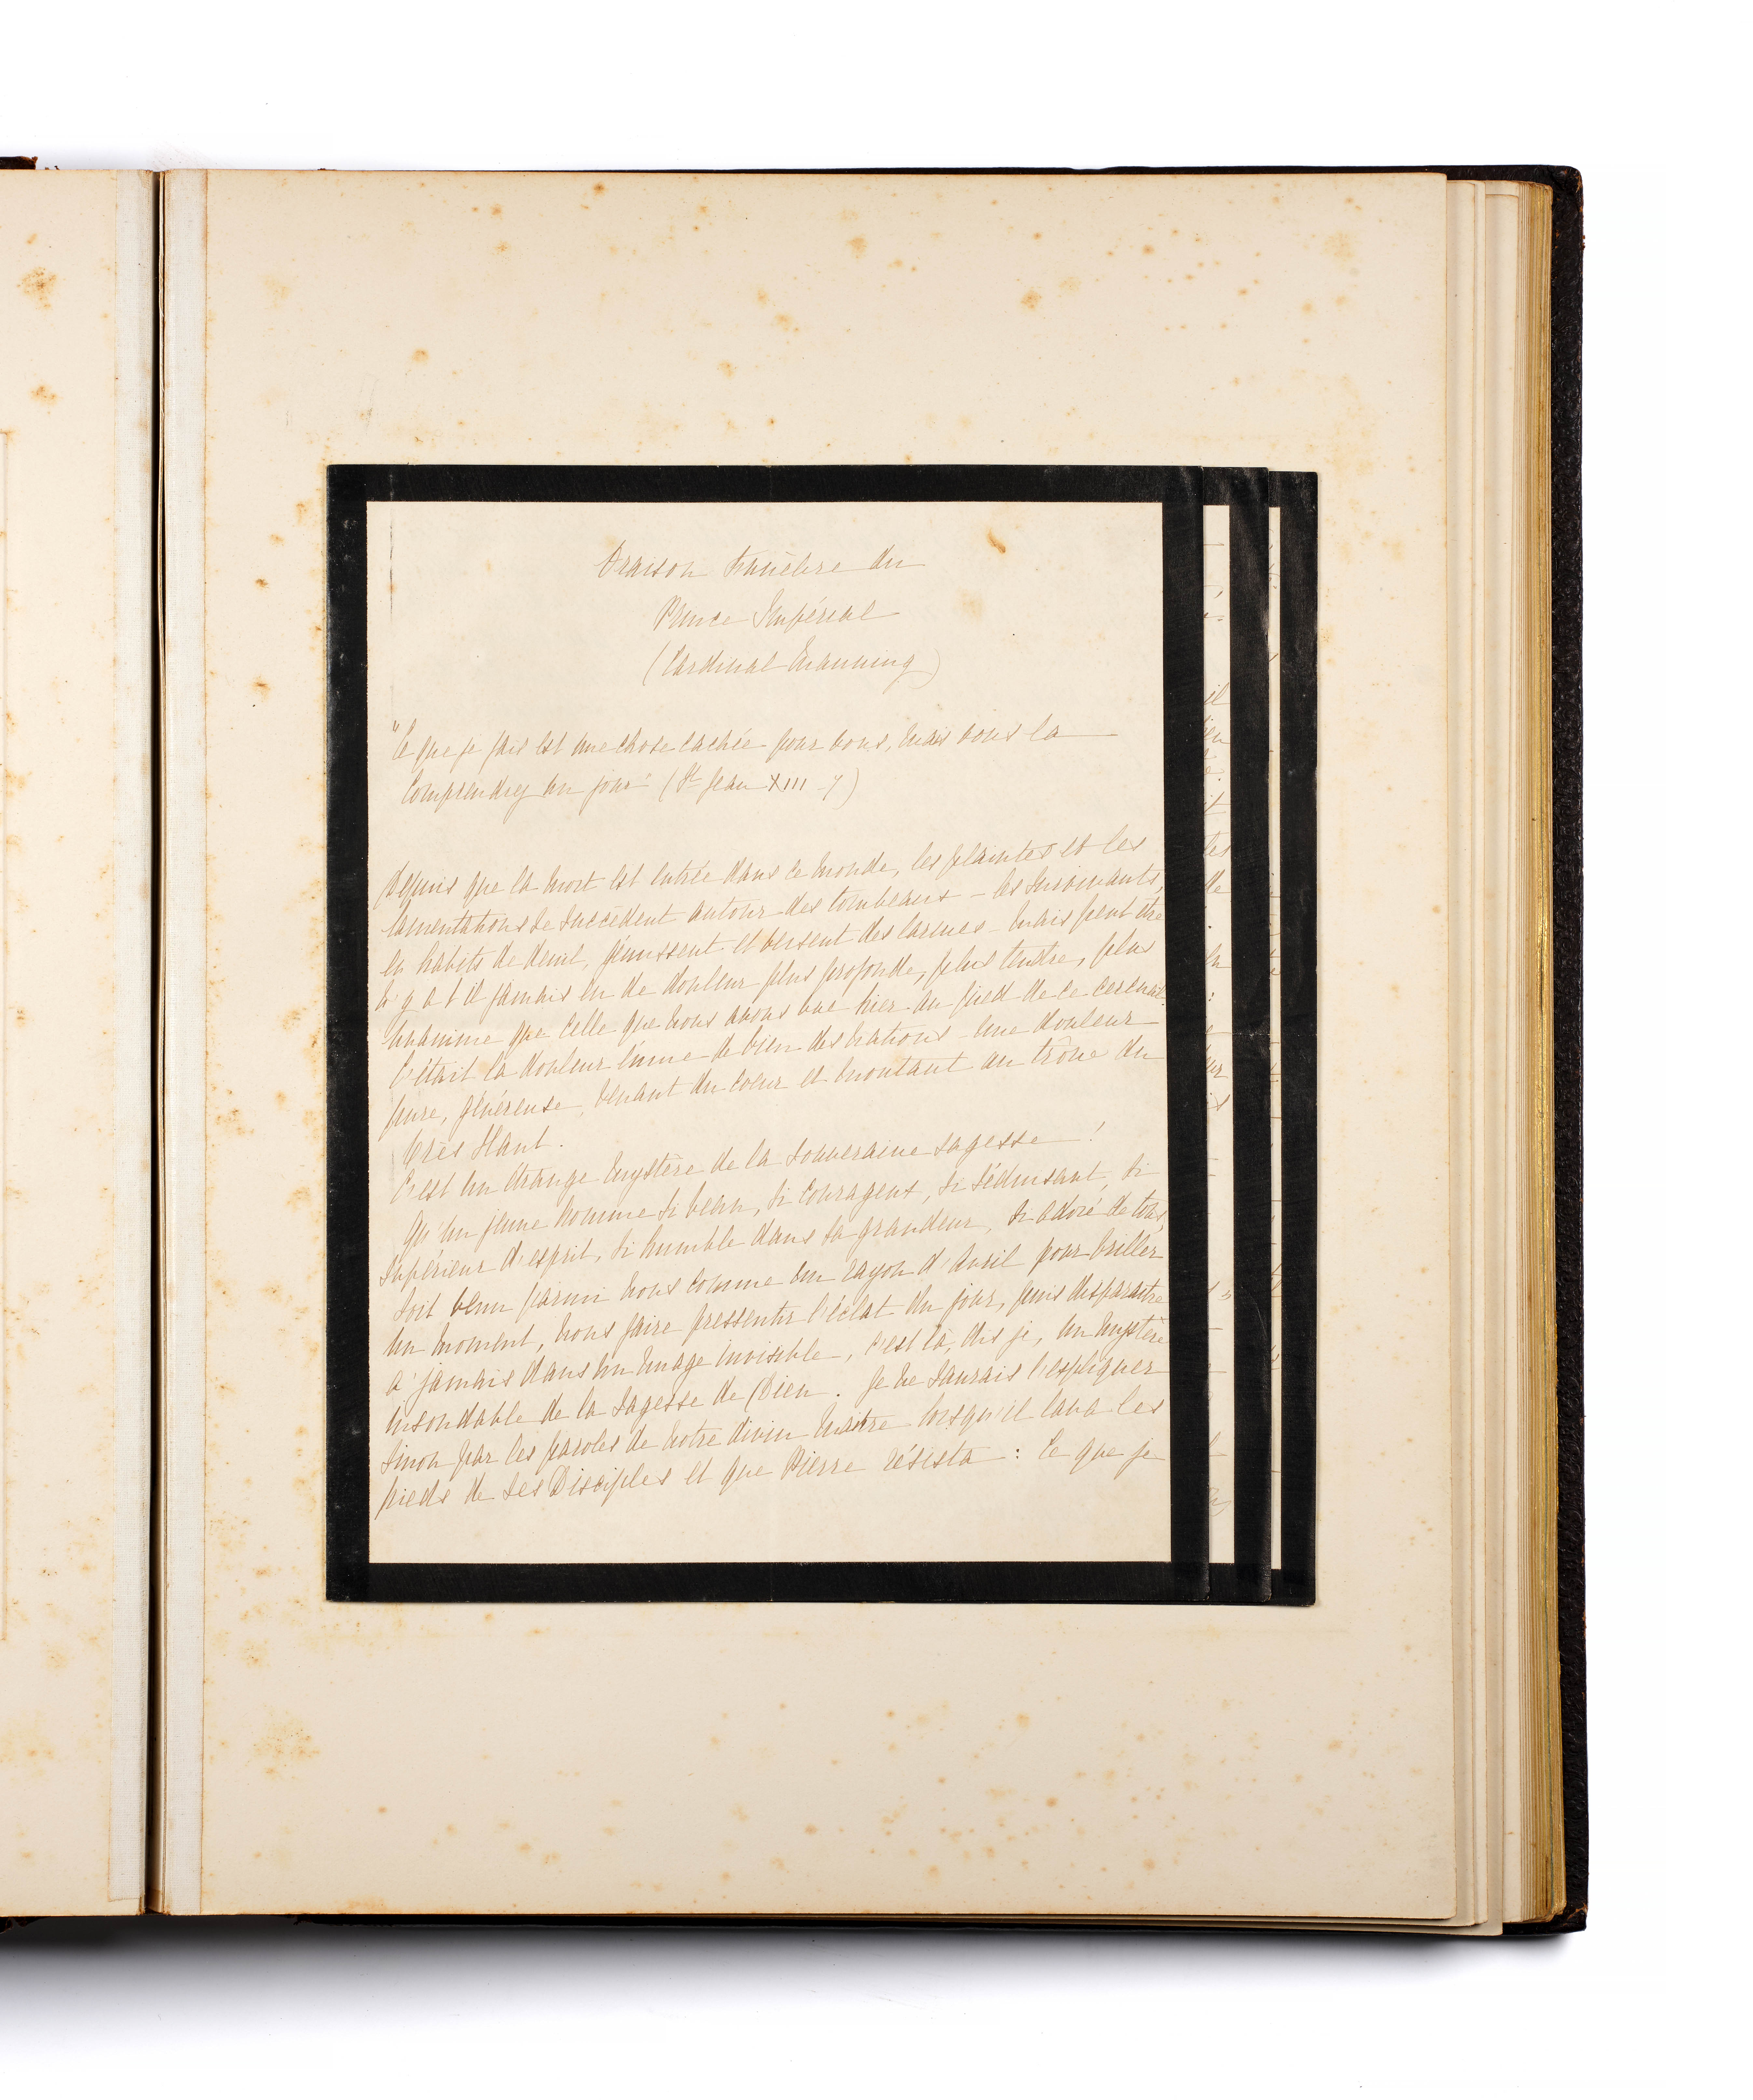 Oraison funèbre du
Prince Impérial
(Cardinal Manning)
"Ce que je fais est une chose cachée pour vous, mais vous la
comprendrez un jour" (St Jean XIII 7)
Depuis que la mort est entrée dans ce monde, les plaintes et les
lamentations se succèdent autour des tombeaux – les survivants,
en habits de deuil, gémissent et versent des larmes – mais peut être
n'y a t il jamais eu de douleur plus profonde, plus tendre, plus
unanime que celle que nous avons vue hier au pied de ce cercueil.
C'était la douleur intime de bien des nations – une douleur
pure, généreuse, venant du coeur et montant au trône du
Très Haut.
C'est un étrange mystère de la souveraine sagesse !
Qu'un jeune homme si beau, si courageux, si séduisant, si
supérieur d'esprit, si humble dans sa grandeur, si adoré de tous,
soit venu parmi nous comme un rayon d'Avril pour briller
un moment, nous faire pressentir l'éclat du jour, puis disparaitre
a jamais dans un nuage invisible, c'est là, dis je, un mystère
insondable de la sagesse de Dieu. Je ne saurais l'expliquer
sinon par les paroles de notre divin maitre lorsqu'il lava les
pieds de ses Disciples et que Pierre résista : Ce que je